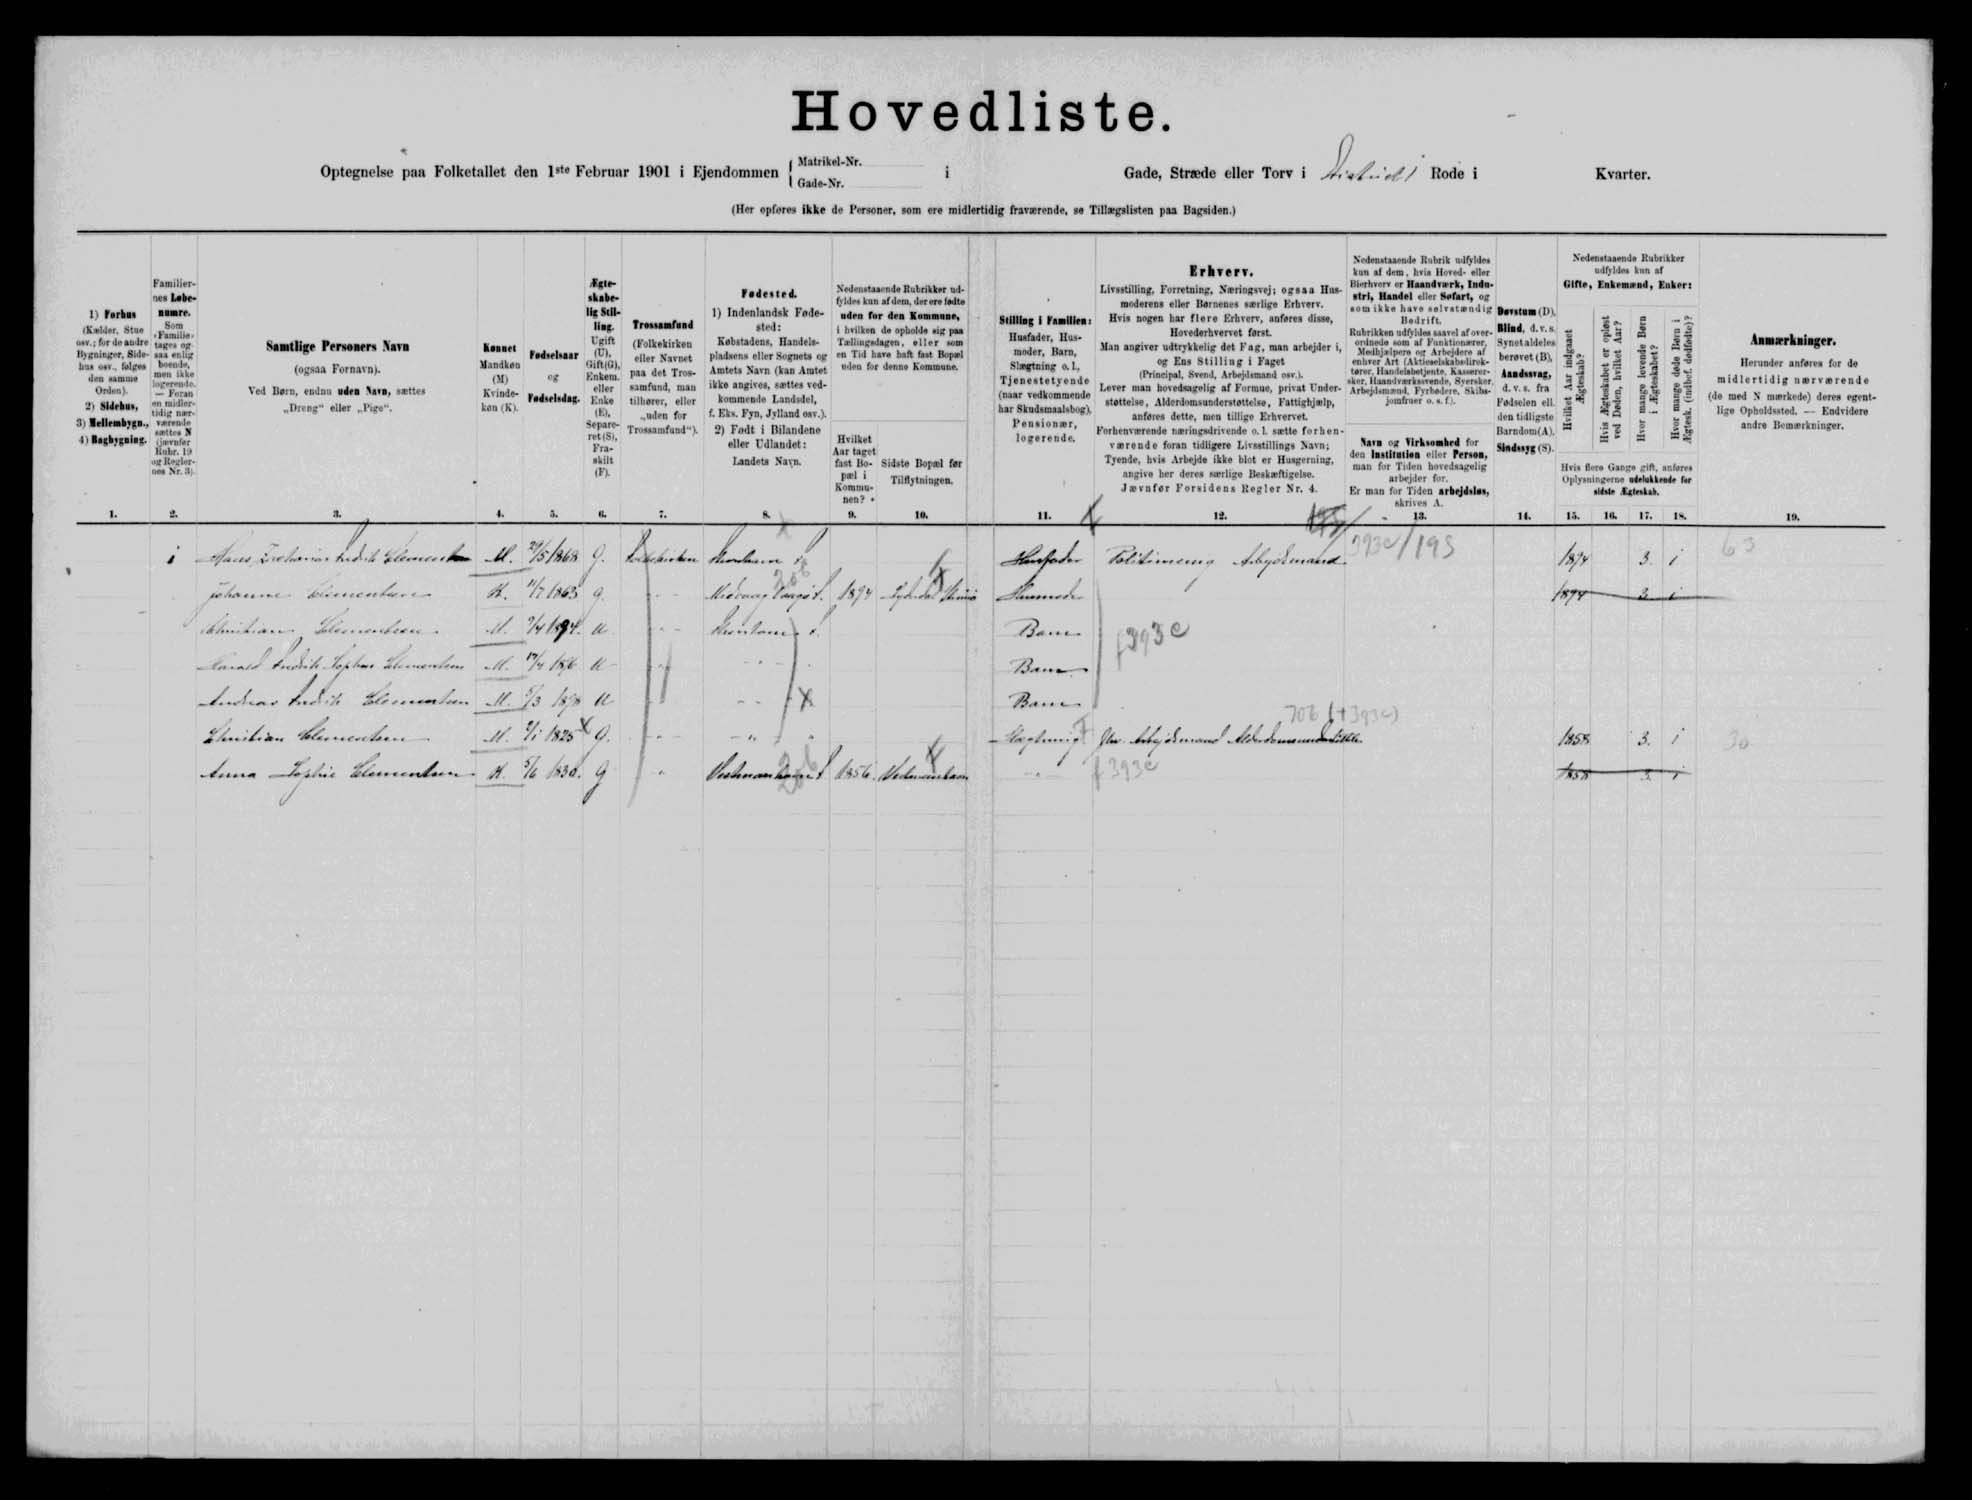 Hovedliste.
Optegnelse paa Folketallet den 1ste Februar 1901 i Ejendommen { Matrikel-Nr. i Gade, Stræde eller Torv i Rode i Kvarter.
Gade-Nr.
(Her opføres ikke de Personer, som ere midlertidig fraværende, se Tillægslisten paa Bagsiden.)
1) Forhus
(Kælder, Stue
osv.; for de andre
Bygninger, Side-
hus osv., følges
den samme
Orden).
2) Sidehus,
3) Mellembygn.,
4) Bagbygning.
Familier-
nes Løbe-
numre.
Som
»Familie»
tages og-
saa enlig
boende,
men ikke
logerende.
— Foran
en midler-
tidig nær-
værende
sættes N
(jævnfør
Rubr. 19
og Regler-
nes Nr. 3).
Samtlige Personers Navn
(ogsaa Fornavn).
Ved Børn, endnu uden Navn, sættes
„Dreng“ eller „Pige“.
Kønnet
Mandkøn
(M)
Kvinde-
køn (K).
Fødselsaar
og
Fødselsdag.
Ægte-
skabe-
lig Stil-
ling.
Ugift
(U),
Gift(G),
Enkem.
eller
Enke
(E),
Separe-
ret (S),
Fra-
skilt
(F).
Trossamfund
(Folkekirken
eller Navnet
paa det Tros-
samfund, man
tilhører, eller
„uden for
Trossamfund“).
Fødested.
1) Indenlandsk Føde-
sted:
Købstadens, Handels-
pladsens eller Sognets og
Amtets Navn (kan Amtet
ikke angives, sættes ved-
kommende Landsdel,
f. Eks. Fyn, Jylland osv.).
2) Født i Bilandene
eller Udlandet:
Landets Navn.
Nedenstaaende Rubrikker ud-
fyldes kun af dem, der ere fødte
uden for den Kommune,
i hvilken de opholde sig paa
Tællingsdagen, eller som
en Tid have haft fast Bopæl
uden for denne Kommune.
Hvilket
Aar taget
fast Bo-
pæl i
Kommu-
nen?
Sidste Bopæl før
Tilflytningen.
Stilling i Familien:
Husfader, Hus-
moder, Barn,
Slægtning o. l.,
Tjenestetyende
(naar vedkommende
har Skudsmaalsbog),
Pensionær,
logerende.
Erhverv.
Livsstilling, Forretning, Næringsvej; ogsaa Hus-
moderens eller Børnenes særlige Erhverv.
Hvis nogen har flere Erhverv, anføres disse,
Hovederhvervet først.
Man angiver udtrykkelig det Fag, man arbejder i,
og Ens Stilling i Faget
(Principal, Svend, Arbejdsmand osv.).
Lever man hovedsagelig af Formue, privat Under-
støttelse, Alderdomsunderstøttelse, Fattighjælp,
anføres dette, men tillige Erhvervet.
Forhenværende næringsdrivende o. l. sætte forhen-
værende foran tidligere Livsstillings Navn;
Tyende, hvis Arbejde ikke blot er Husgerning,
angive her deres særlige Beskæftigelse.
Jævnfør Forsidens Regler Nr. 4.
Nedenstaaende Rubrik udfyldes
kun af dem, hvis Hoved- eller
Bierhverv er Haandværk, Indu-
stri, Handel eller Søfart, og
som ikke have selvstændig
Bedrift.
Rubrikken udfyldes saavel af over-
ordnede som af Funktionærer,
Medhjælpere og Arbejdere af
enhver Art (Aktieselskabsdirek-
tører, Handelsbetjente, Kasserer-
sker, Haandværkssvende, Syersker,
Arbejdsmænd, Fyrbødere, Skibs-
jomfruer o. s. f.).
Navn og Virksomhed for
den Institution eller Person,
man for Tiden hovedsagelig
arbejder for.
Er man for Tiden arbejdsløs,
skrives A.
Døvstum (D),
Blind, d. v. s.
Synet aldeles
berøvet (B),
Aandssvag,
d. v. s. fra
Fødselen ell.
den tidligste
Barndom (A),
Sindssyg (S).
Nedenstaaende Rubrikker
udfyldes kun af
Gifte, Enkemænd, Enker:
Hvilket Aar indgaaet
Ægteskab?
Hvis Ægteskabet er opløst
ved Døden, hvilket Aar?
Hvor mange levende Børn
i Ægteskabet?
Hvor mange døde Børn i
Ægtesk. (indbef. dødfødte)?
Hvis flere Gange gift, anføres
Oplysningerne udelukkende for
sidste Ægteskab.
Anmærkninger.
Herunder anføres for de
midlertidig nærværende
(de med N mærkede) deres egent-
lige Opholdssted. — Endvidere
andre Bemærkninger.
1. 2. 3. 4. 5. 6. 7. 8. 9. 10. 11. 12. 13. 14. 15. 16. 17. 18. 19.
1 Hans Zacharias Fredrik Clementsen M. 29/5 1868 G. Folkekirken Husfader Arbejdsmand 393c/193 1894 3. 1 63
Johanne Clementsen K. 11/7 1863 G. " Midvaag Vaagø 206 1894 Husmoder 1894 3 1
Christian Clementsen M. 1894. U " Barn f 393c
Harald Fredrik Sophus Clementsen M. U " " Barn
Andreas Fredrik Clementsen M. 5/3 1898 U " " Barn
Christian Clementsen M. 1825 G. " " Slægtning fhv. Arbejdsmand Alderdomsunderstøttelse 706 (+393c) 1858 3. 1 30
Anna Sophie Clementsen K. 5/6 1830. G " Vestmanhavn 206 1856 Vestmanhavn " f 393c 1858 3. 1